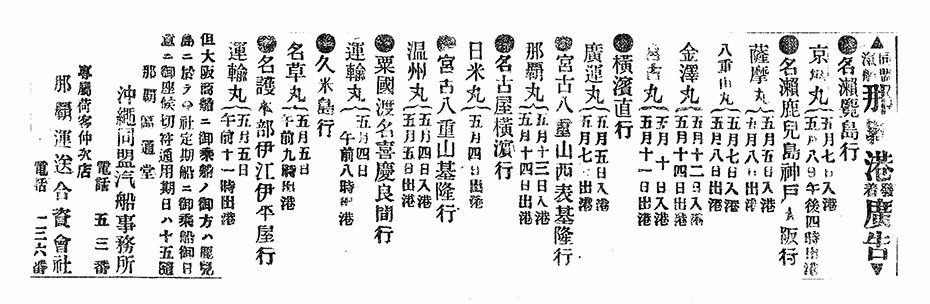 同盟漁船那覇港發着廣告
●名瀬鹿島行
京城丸 五月七日入港
五月八日午後四時出港
●名瀬鹿兒島神戸大阪行
薩摩丸 五月五日入港
五月七日出港
八重山丸 五月七日入港
五月八日出港
金澤丸 五月十二日入港
五月十四日出港
五月十日入港
五月十一日出港
●橫濱直行
廣運丸 五月五日入港
五月七日出港
●宮古八重山西表基隆行
那覇丸 五月十三日入港
五月十四日出港
●名古屋橫濵行
日米丸 五月四日出港
●宮古八重山基隆行
温州丸 五月四日入港
五月五日出港
●粟國渡名喜慶良間行
運輸丸 五月四日
午前八時出港
●久米島行
名草丸 五月五日
午前九時出港
●名護本部伊江伊平屋行
運輸丸 五月五日
午前十一時出港
但大阪商船ニ御乘船ノ御方ハ鹿兒
島ニ於テ同社定期船ニ御乘船御日
直ニ御座候切符通用期日ハ十五日間
那覇區通堂
沖繩同盟汽船事務所
電話 五三番
專屬荷客仲次店
那覇運送合資會社
電話 二三六番